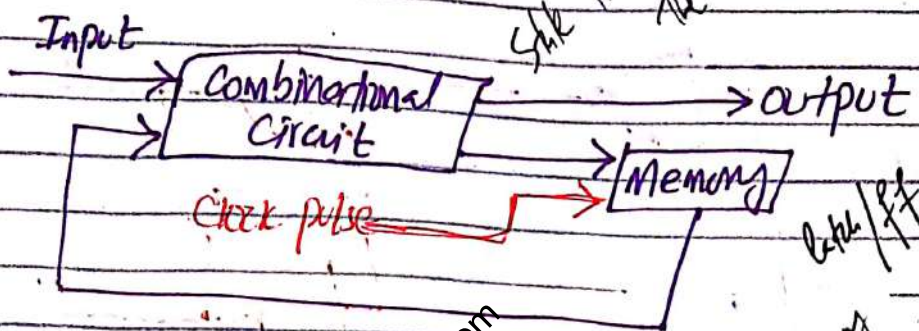 Input
Combinational
Circuit
output
Memory
Clock pulse
latch/ff
com